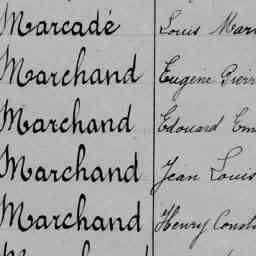 Marcadé Louis Mari
Marchand Eugène Pierr
Marchand Edouard Em
Marchand Jean Louis
Marchand Henry Const